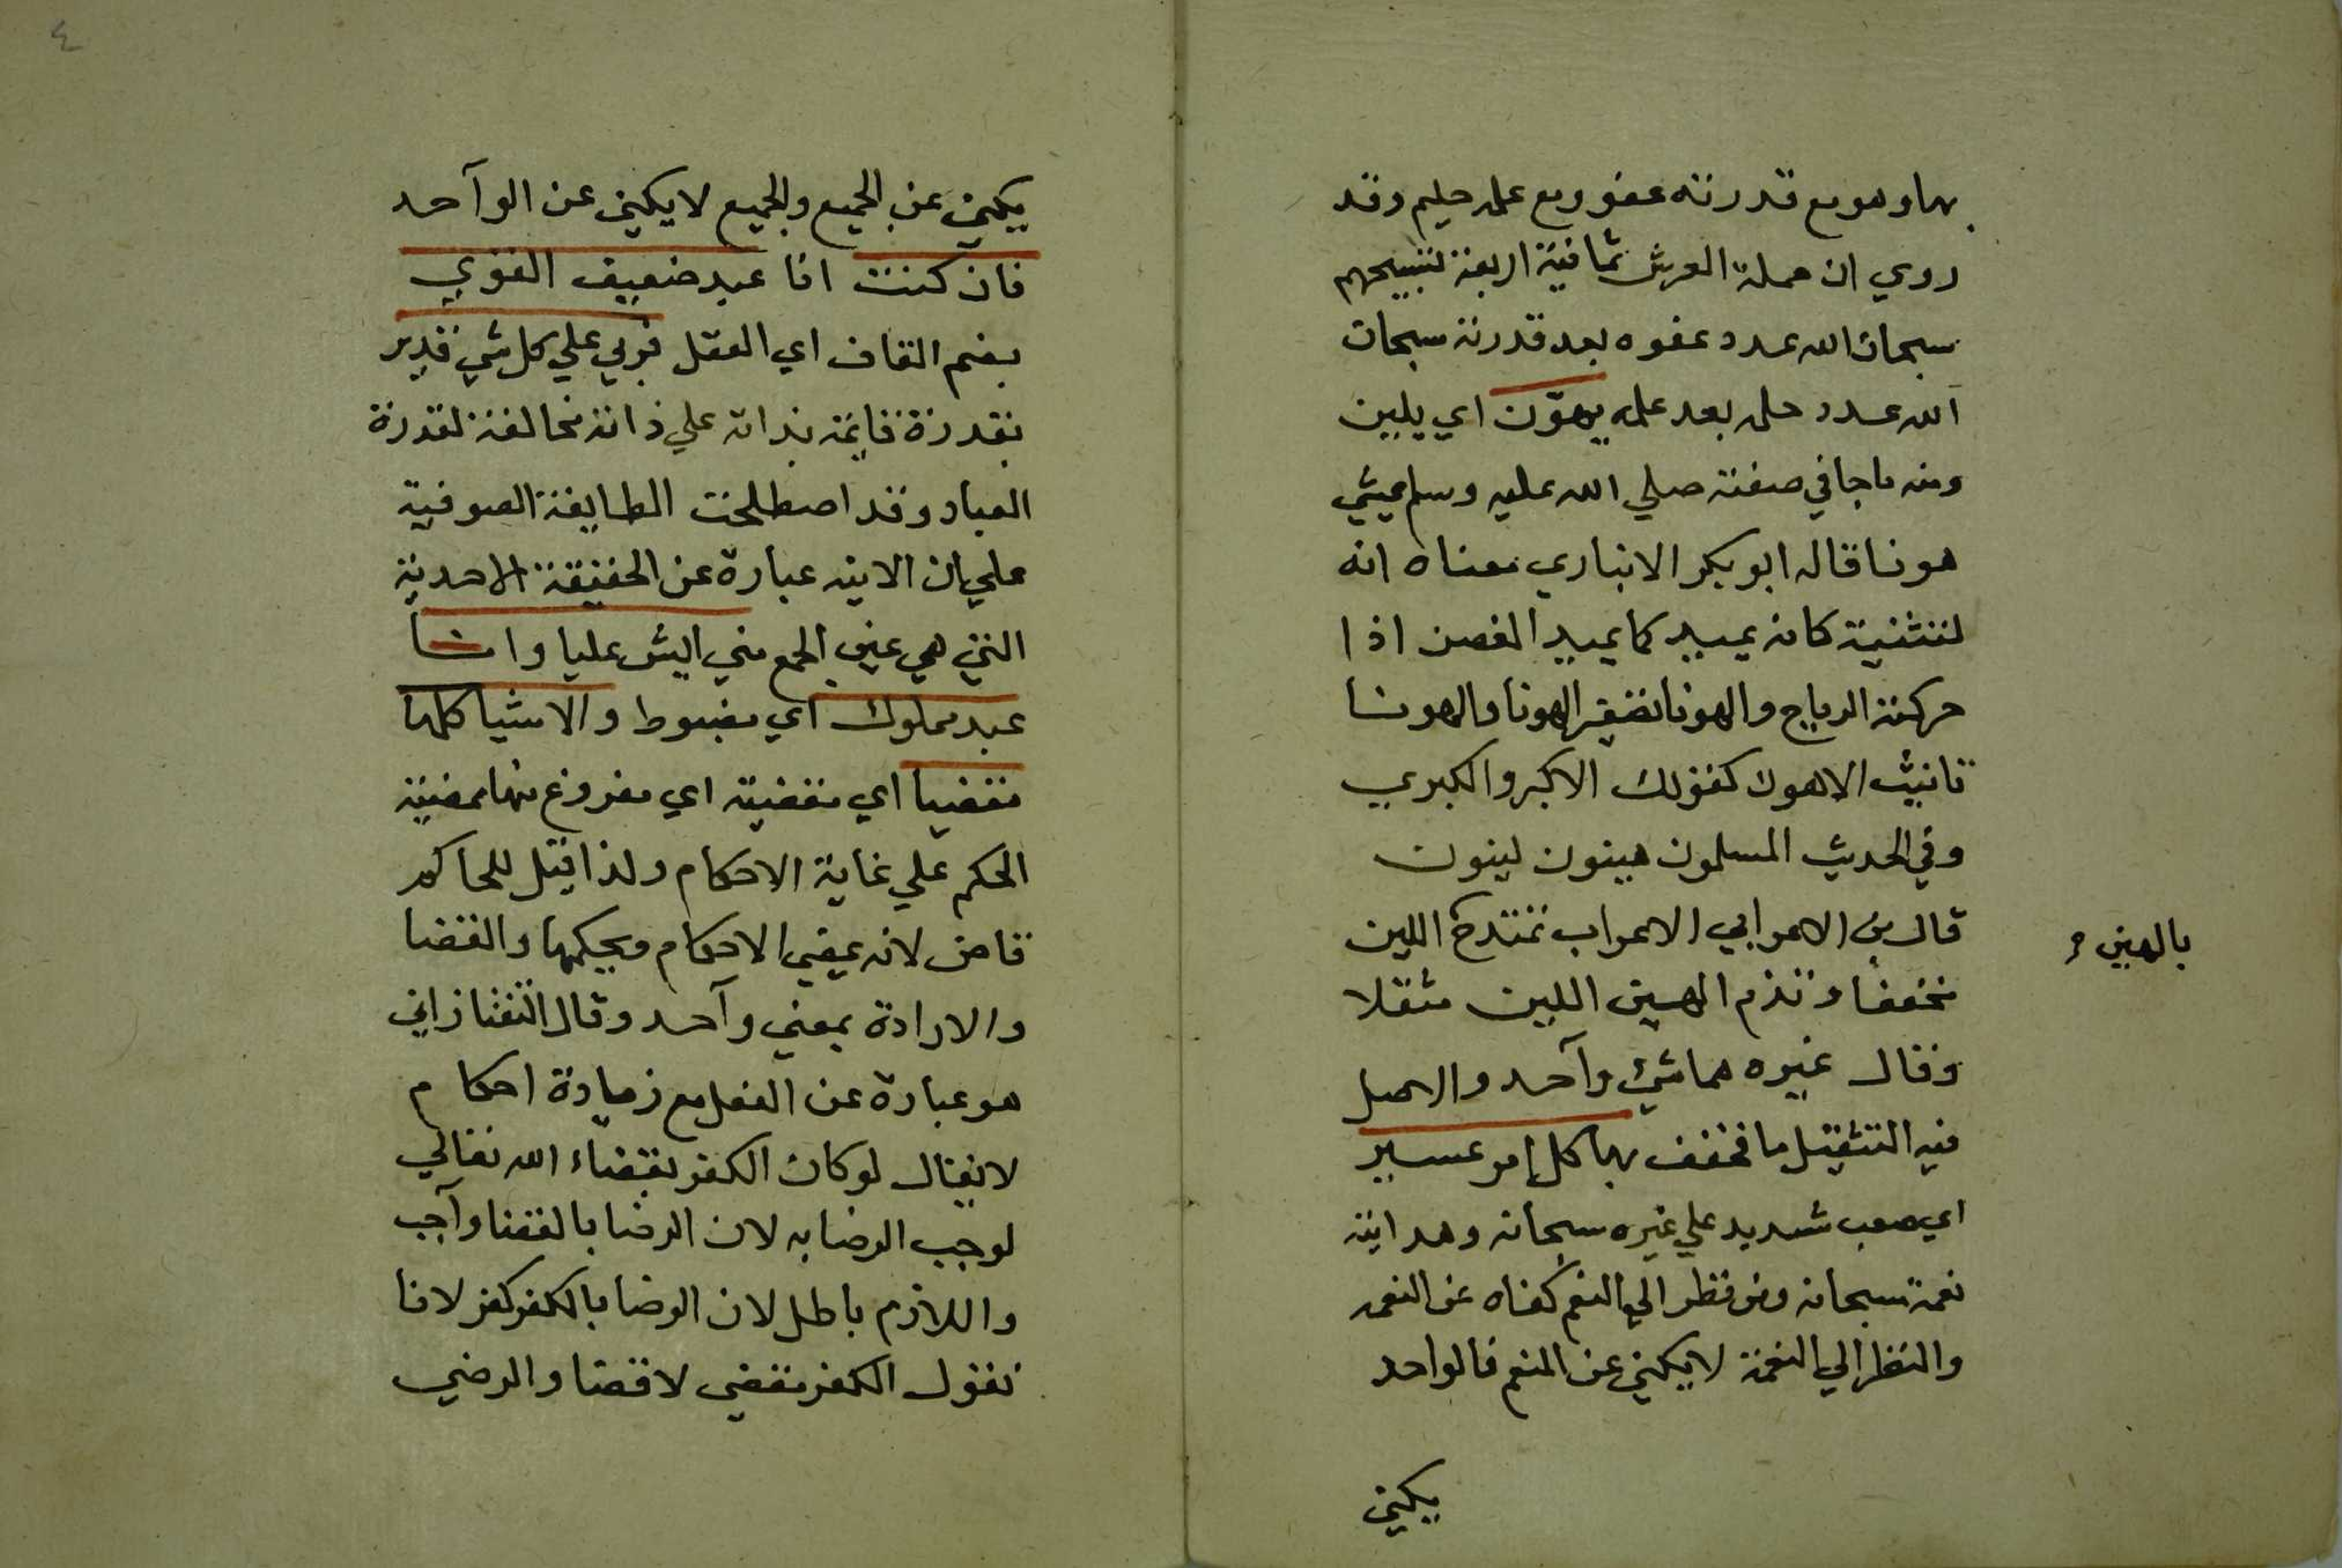 بها وهو مع قدرته عفو ومع علمه حليم وقد
روي ان حملة العرش ثمانية اربعة تسبيحهم
سبحان الله عدد عفوه بعد قدرته سبحان
الله عدد حلمه بعد علمه يهوّن اي يلين
ومنه ما جا في صفته صلي الله عليه وسلم يمشي
هونا قال ابو بكر الانباري معناه انه
لتثنيه كان يميد كما يميد الغصن اذا
حركته الرياح والهونا تصغير الهونا والهونا
تانيث الاهون كقولك الاكبر والكبري
وفي الحديث المسلمون هينون لينون
قال بن الاعرابي الاعراب تمتدح اللين
بالهين
مخففا وتذم الهين اللين مثقلا
وقال غيره هما شئ وآحد والاصل
فيه التثقيل ما فخفف بها كل امر عسير
اي صعب شديد علي غيره سبحانه وهدايته
نعمة سبحانه ومن نظر الي المنعم كفاه عن النعمه
والنظر الي النعمة لا يكفي عن المنعم فالواحد
يكفي
٤
يكفي عن الجميع والجميع لا يكفي عن الوآحد
فان كنت انا عبد ضعيف القوي
بضم القاف اي العقل فربي علي كل شي قدير
بقدرة قايمة بذاته علي ذاته مخالفة لقدرة
العباد وقد اصطلحت الطايفة الصوفية
علي ان الانيه عبارة عن الحقيقة الاحدية
التي هي عين الجمع مني ايش عليا وانا
عبد مملوك اي مضبوط والاشيا كلها
مقضيا اي مقضية اي مفروغ منها ممضية
الحكم علي غاية الاحكام ولذا قيل للحاكم
قاض لانه يمضي الاحكام ويحكمها والقضا
والارادة بمعني وآحد وقال التفتازاني
هو عبارة عن الفعل مع زيادة احكام
لا يقال لو كان الكفر بقضاء الله تعالي
لوجب الرضا به لان الرضا بالقضا وآجب
واللازم باطل لان الرضا بالكفر كفر لانا
نقول الكفر مقضي لا قضا والرضي